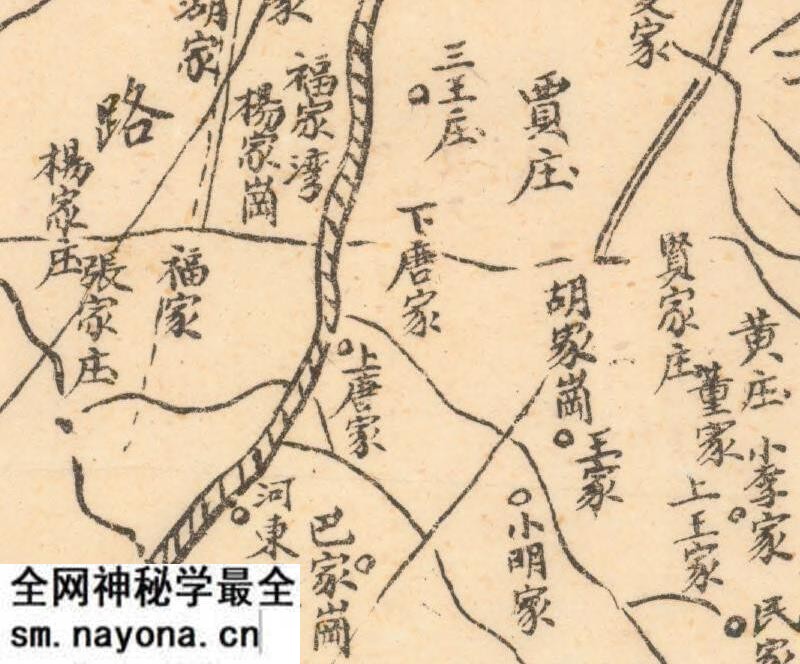 湖家
家
家
路
福家湾
楊家崗
三王庄
賈庄
楊家庄
張家庄
福家
下唐家
胡家崗
賢家庄
黄庄
董家
上唐家
王家
小李家
上王家
河東
巴家崗
小明家
民家
全网神秘学最全
sm.nayona.cn